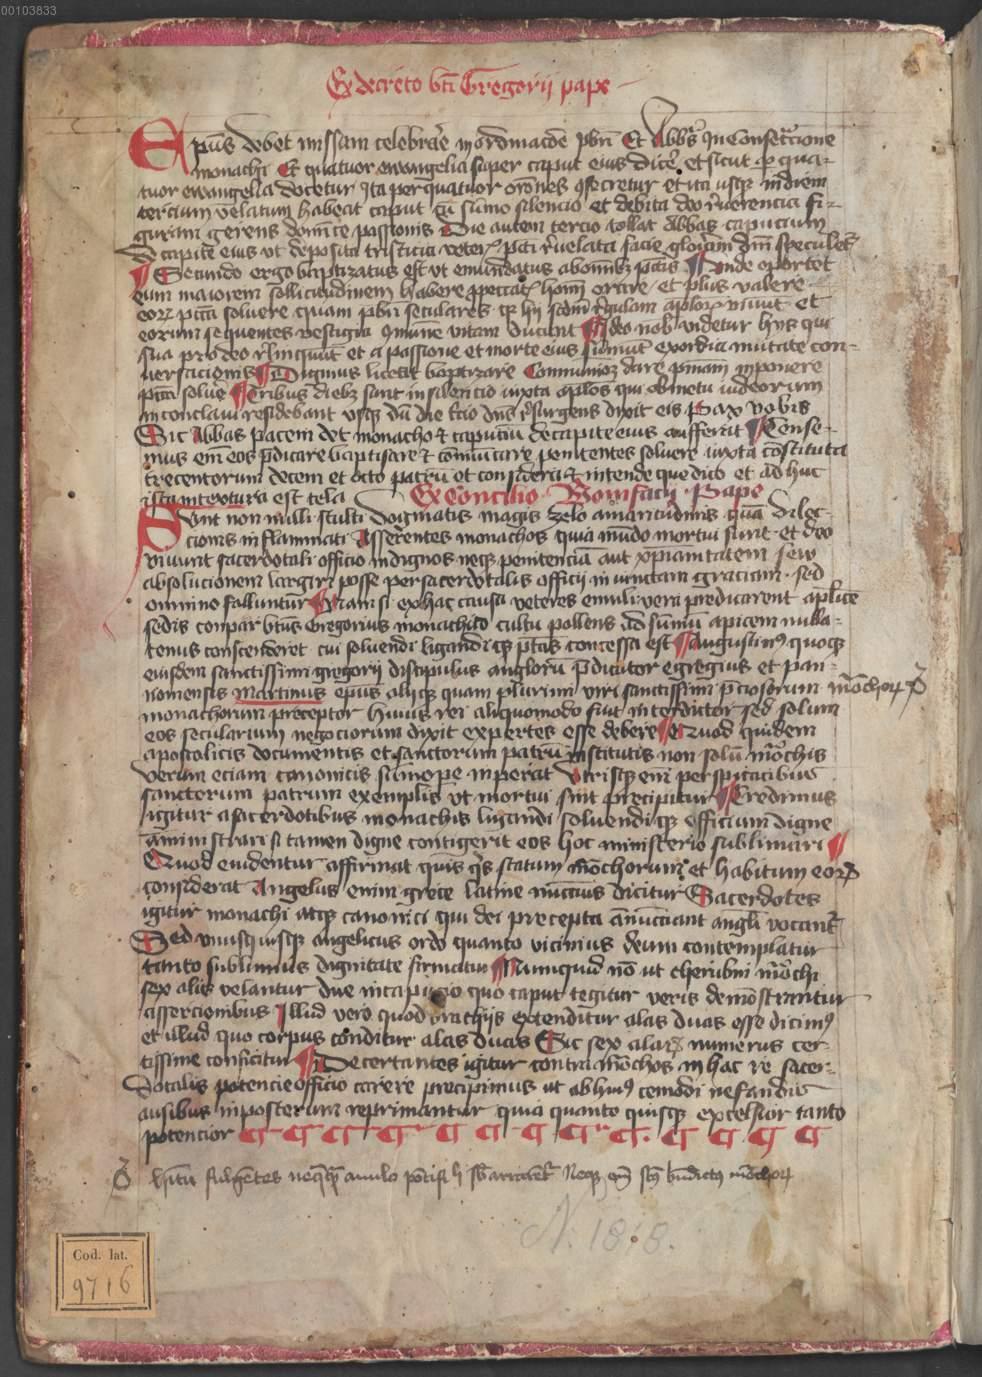 00103833
Ex decreto bti Gregorii pape
Epus debet missam celebrare in ordinacoe pbri Et Abbs In Consecracione
monachi Et quatuor ewangelia super caput eius dicere et sicut p qua-
tuor ewangelia docetur Ita per quatuor orones 9secretur et ita usq in diem
tercium velatum habeat caput cu sumo silencio et debita deo reuerencia fi-
guram gerens domice passionis Die autem tercio tollat Abbas capucium
de capite eius vt deposita tristicia pcti reuelata facie gloriam dni speculet
Secundo ergo baptizatus est vt emundatus ab omibz pctis Unde oportet
eum maiorem sollicitudinem habere orare et plus valere
eorum pcta soluere quam pbri seculares q hii scdm regulam aplor viuut et
eorum sequentes vestigia 9mune vitam ducunt Ideo nob videtur hiis qui
sua pro deo relinquut et a passione et morte eius sumut exordia mutate con-
uersacionis Dignius licere baptizare Communioe dare imponere
pcta soluere Tribus diebz sunt in silencio iuxta aplos qui ob metu iudeorum
in conclaui residebant vsq du die tercio dns resurgens dixit eis Pax vobis
Sic Abbas pacem det monacho & capuciu de capite eius aufferat Cense-
mus em eos pdicare baptisare & comuicare penitentes soluere iuxta constituta
trecentorum decem et octo patru et considera & intende que dico et adhuc
ista intextura est tela Ex Concilio Bonifacii Pape
Sunt non nulli stulti dogmatis magis zelo amaritudinis qua dilec-
cionis inflammati Asserentes monachos quia mudo mortui sunt et deo
viuunt sacerdotali officio indignos neq penitencia aut xpianitatem seu
absolucionem largiri posse per sacerdotalis officij iniunctam graciam sed
omnino falluntur Nam si ex hac causa veteres emuli vera predicarent aplice
sedis compar btus Gregorius monachico cultu pollens ad sumu apicem nulla-
tenus conscenderet cui soluendi ligandiq ptas concessa est Augustinus quoq
eiusdem sanctissimi gregorii discipulus angloru pdicator egregius et pan-
nonensis Martinus epus aliiq quam plurimi viri sanctissimi pciosorum mochor
monachorum preceptor huius rei aliquomodo fuit interdictor sed solum
eos secularium negociorum dixit expertes esse debere Quod quidem
apostolicis documentis et sanctorum patru institutis non solu mochis
verum eciam canonicis sumope inperat Vtrisq eni perspicacibus
sanctorum patrum exemplis vt mortui sint precipitur Credimus
igitur a sacerdotibus monachis ligandi soluendiq officium digne
aministrari si tamen digne contigerit eos hoc ministerio sublimari
Quod euidentur affirmat quis qs statum mochorum et habitum eor
considerat Angelus enim grece latine nuncius dicitur Sacerdotes
igitur monachi atq canonici qui dei precepta anuncciant angli vocant
Sed vnusquisq angelicus ordo quanto vicinius deum contemplatur
tanto sublimius dignitate firmatur Numquid no ut cherubin mochi
sex aliis velantur due in capucio quo caput tegitur veris demostrantur
assercionibus Illud vero quod brachijs extenditur alas duas esse dicim9
et illud quo corpus conditur alas duas Sic sex alar numerus cer-
tissime conficitur Decertantes igitur contra mochos in hac re sacer-
dotalis potencie officio carere precipimus ut ab hui9 cemodi nefandis
ausibus inposterum reprimantur quia quanto quisq excelsior tanto
potencior
neq em scs bndictus mochor
N. 1818.
Cod. lat.
9716